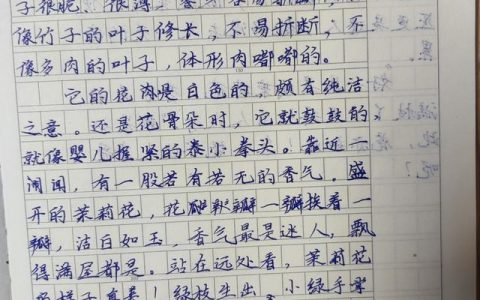 子很脆，很薄
像竹子的叶子修长，不易折断，不
像多肉的叶子，体形肉嘟嘟的。
它的花肉是白色的，颇有纯洁
之意。还是花骨朵时，它就鼓鼓的，
就像婴儿握紧的泰小拳头。靠近一
闻闻，有一股若有若无的香气。盛
开的茉莉花，花瓣一瓣挨着一
瓣，洁白如玉，香气最是迷人，飘
得满屋都是。站在远处看，茉莉花
样子真美！绿枝生出，小绿手掌